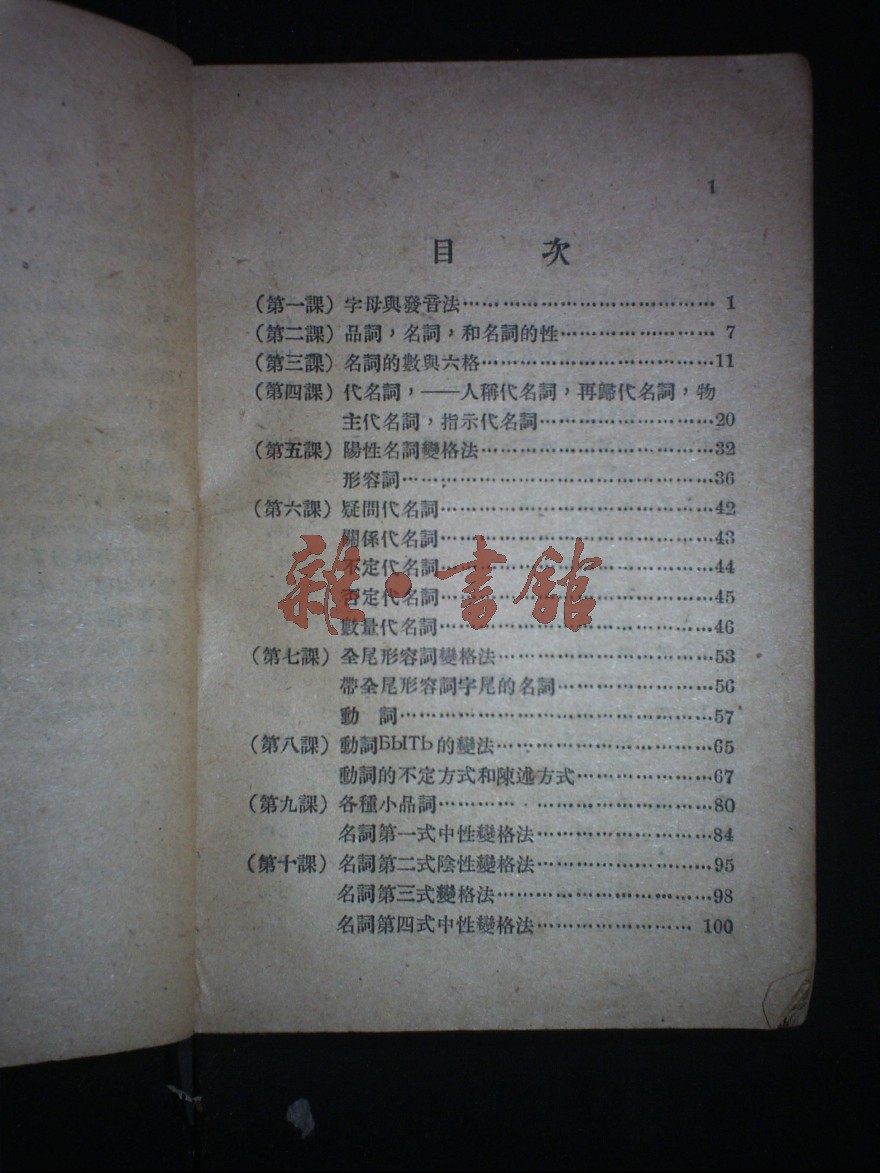 1
目 次
(第一課) 字母與發音法……………………………… 1
(第二課) 品詞，名詞，和名詞的性…………………… 7
(第三課) 名詞的數與六格……………………………11
(第四課) 代名詞，——人稱代名詞，再歸代名詞，物
主代名詞，指示代名詞……………………20
(第五課) 陽性名詞變格法……………………………32
形容詞………………………………………36
(第六課) 疑問代名詞…………………………………42
關係代名詞…………………………………43
不定代名詞…………………………………44
否定代名詞…………………………………45
數量代名詞…………………………………46
(第七課) 全尾形容詞變格法…………………………53
帶全尾形容詞字尾的名詞…………………56
動 詞………………………………………57
(第八課) 動詞БЫТЬ的變法…………………………65
動詞的不定方式和陳述方式………………67
(第九課) 各種小品詞…………………………………80
名詞第一式中性變格法……………………84
(第十課) 名詞第二式陰性變格法……………………95
名詞第三式變格法…………………………98
名詞第四式中性變格法………………… 100
雜·書館